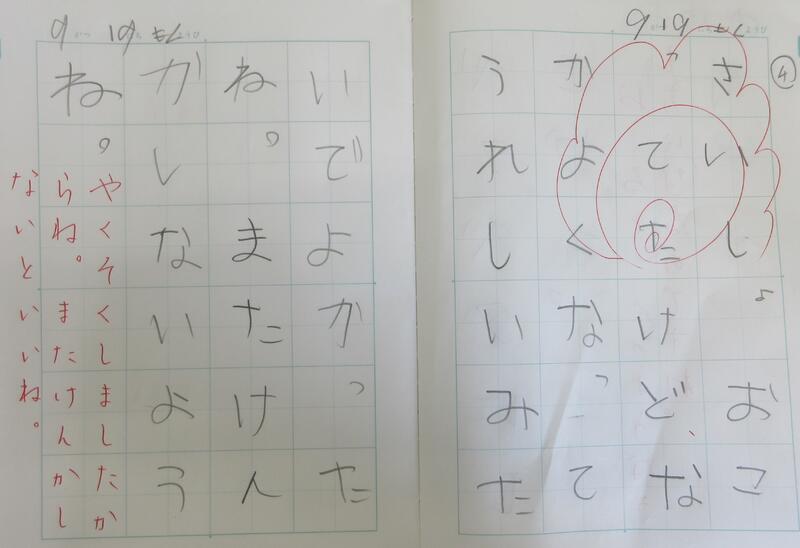 9がつ19にちもくようび
④
さいしょおこ
ってたけど、な
かよくなって
うれしいみた
9がつ19にちもくようび
いでよかった
ね。またけん
かしないよう
ね。
やくそくしましたか
らね。またけんかし
ないといいね。